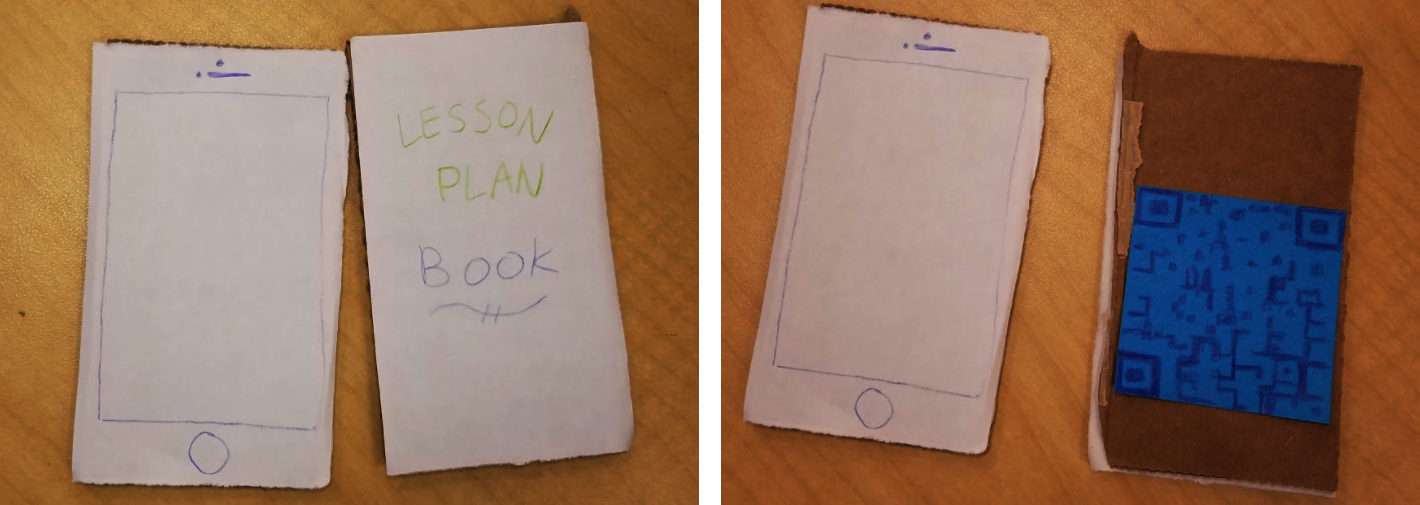 LESSON
PLAN
BOOK